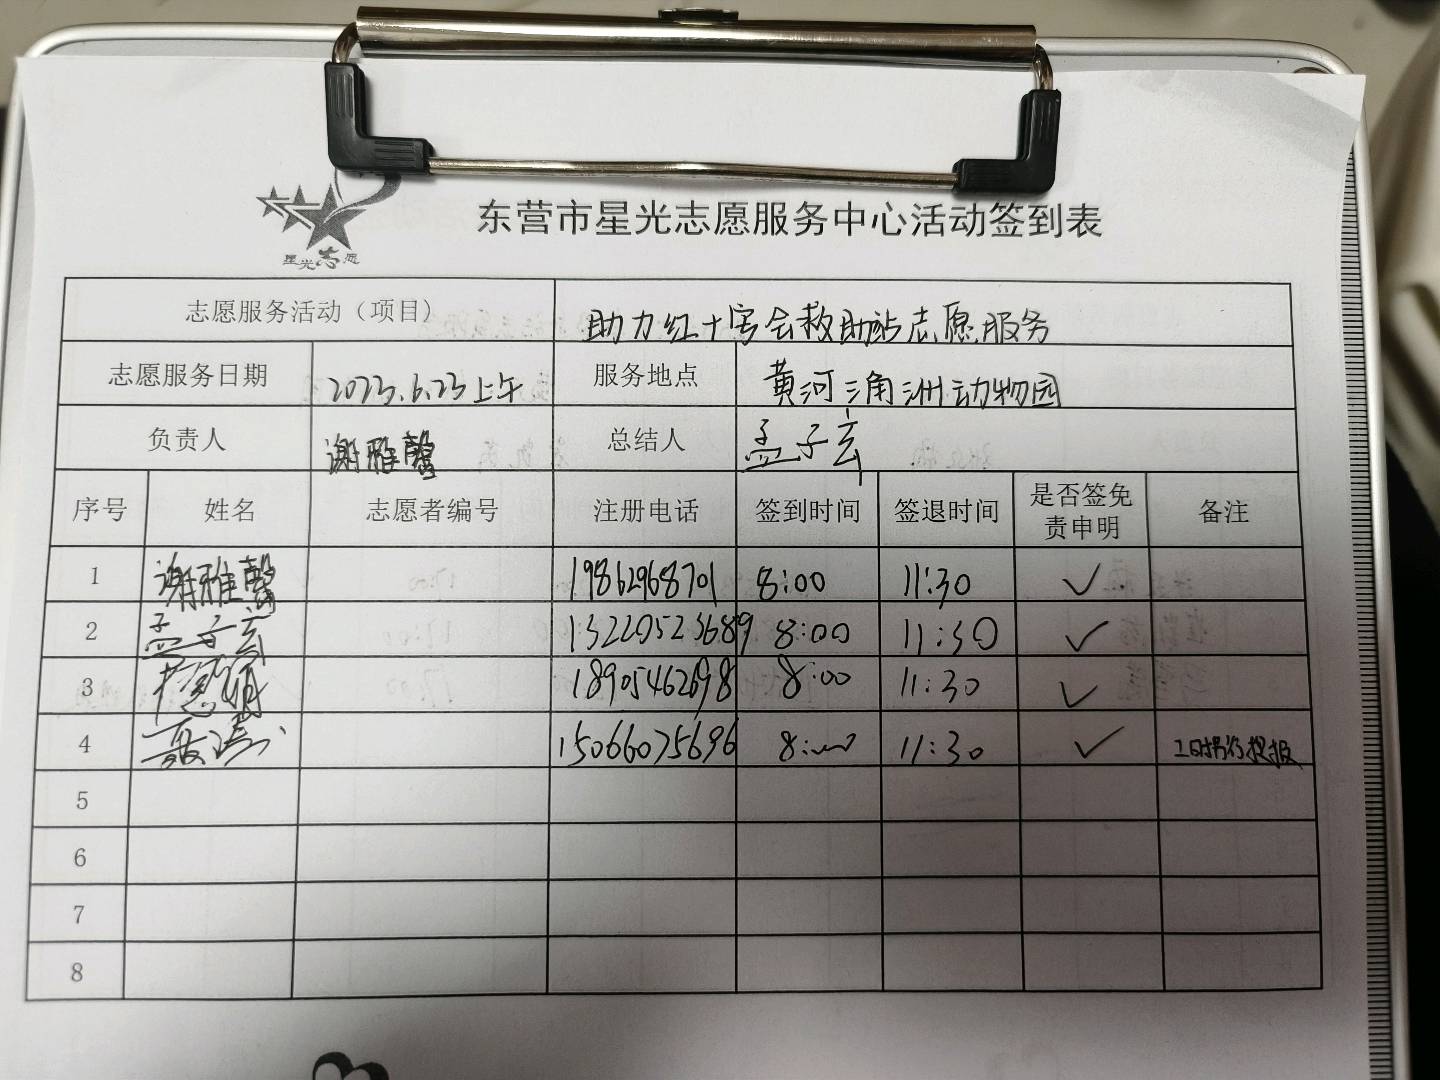 星光志愿
东营市星光志愿服务中心活动签到表
志愿服务活动（项目） 助力红十字会救助站志愿服务
志愿服务日期 2023.6.23上午 服务地点 黄河三角洲动物园
负责人 谢雅馨 总结人 孟子玄
序号 姓名 志愿者编号 注册电话 签到时间 签退时间 是否签免责申明 备注
1 谢雅馨 19862968701 8:00 11:30 ✓
2 孟子玄 13220523689 8:00 11:30 ✓
3 18905462698 8:00 11:30 ✓
4 聂涛 15066075696 8:00 11:30 ✓
5
6
7
8